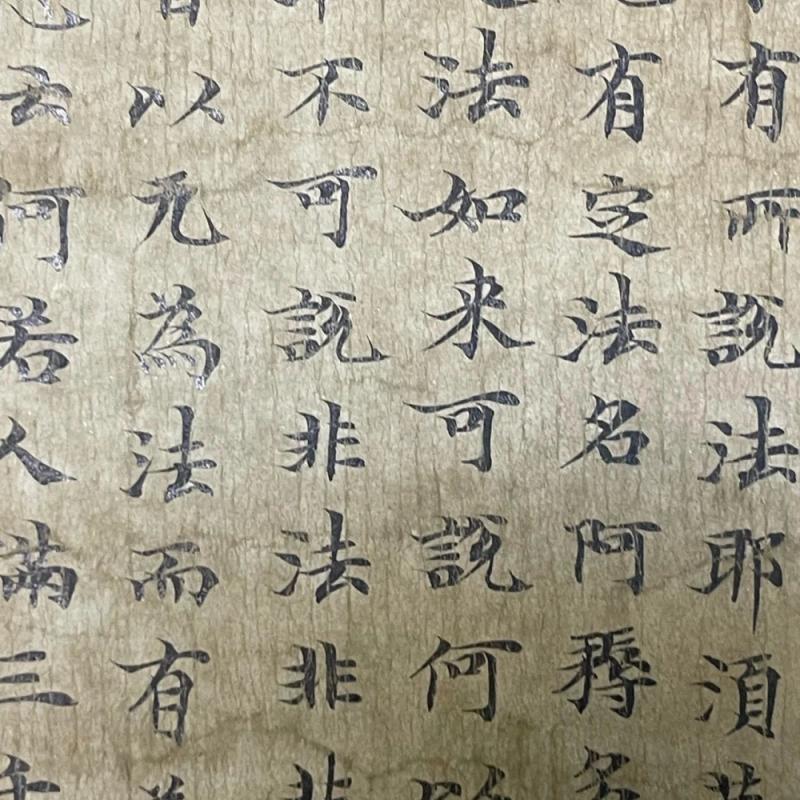 有所說法耶須
有定法名阿耨
法如来可說何
不可說非法非
以无為法而有
云何若人滿三